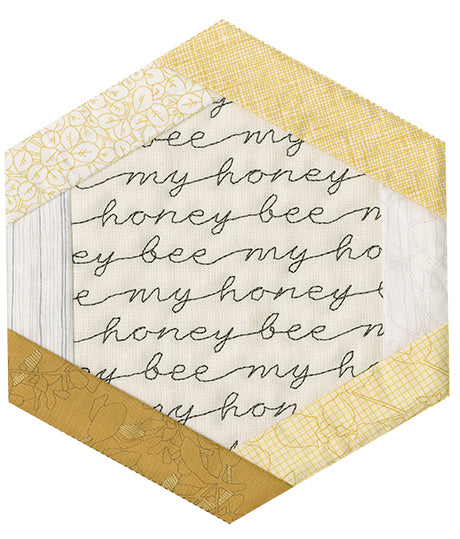 bee my
my honey
honey bee m
ey bee my ho
e my honey
honey bee m
y bee my h
my hon